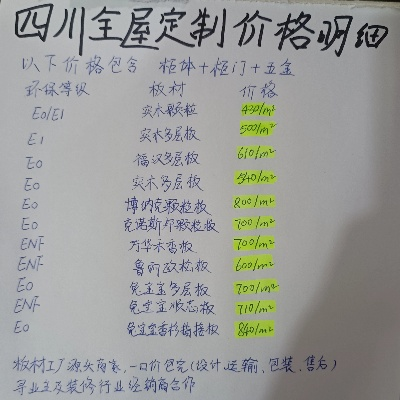 四川全屋定制价格明细
以下价格包含 柜体+柜门+五金
环保等级 板材 价格
E0/E1 实木颗粒 430/m²
E1 实木多层板 500/m²
E0 福汉多层板 610/m²
E0 实木多层板 540/m²
E0 博纳克颗粒板 800/m²
E0 克诺斯邦颗粒板 700/m²
ENF 万华禾香板 700/m²
ENF 鲁丽欧松板 600/m²
E0 兔宝宝多层板 700/m²
ENF 兔宝宝顺芯板 710/m²
E0 兔宝宝香杉拼接板 840/m²
板材工厂源头商家,一口价包完(设计、运输、包装、售后)
寻业主及装修行业经销商合作